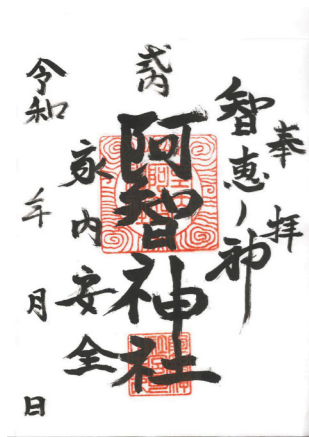 奉拝
智恵ノ神
式内
阿智神社
家内安全
令和 年 月 日